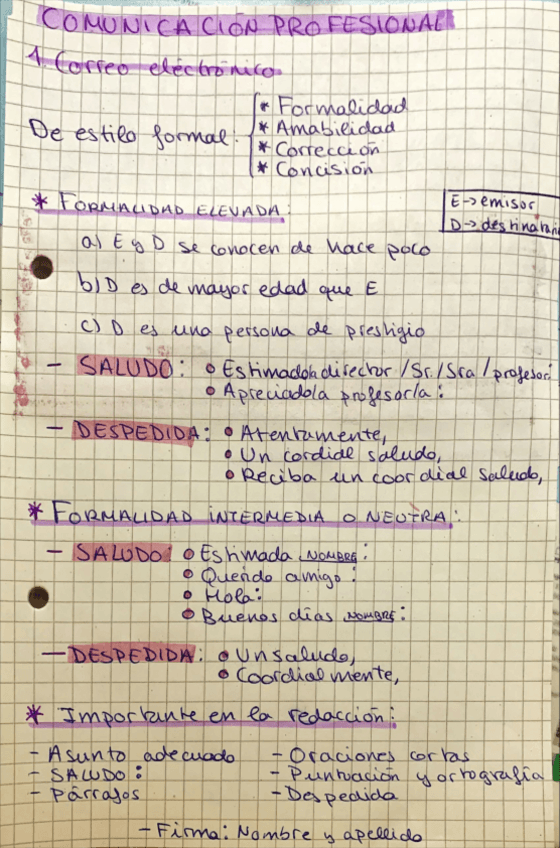 COMUNICACIÓN PROFESIONAL
1. Correo electrónico
De estilo formal:
* Formalidad
* Amabilidad
* Corrección
* Concisión
E → emisor
D → destinatario
* FORMALIDAD ELEVADA:
a) E y D se conocen de hace poco
b) D es de mayor edad que E
c) D es una persona de prestigio
- SALUDO: • Estimado/a director / Sr. / Sra / profesor:
• Apreciado/a profesor/a:
- DESPEDIDA: • Atentamente,
• Un cordial saludo,
• Reciba un coordial saludo,
* FORMALIDAD INTERMEDIA O NEUTRA:
- SALUDO • Estimada NOMBRE:
• Querido amigo:
• Hola:
• Buenos días NOMBRE:
- DESPEDIDA: • Un saludo,
• Coordialmente,
* Importante en la redacción:
- Asunto adecuado
- SALUDO:
- Párrafos
- Oraciones cortas
- Puntuación y ortografía
- Despedida
- Firma: Nombre y apellido